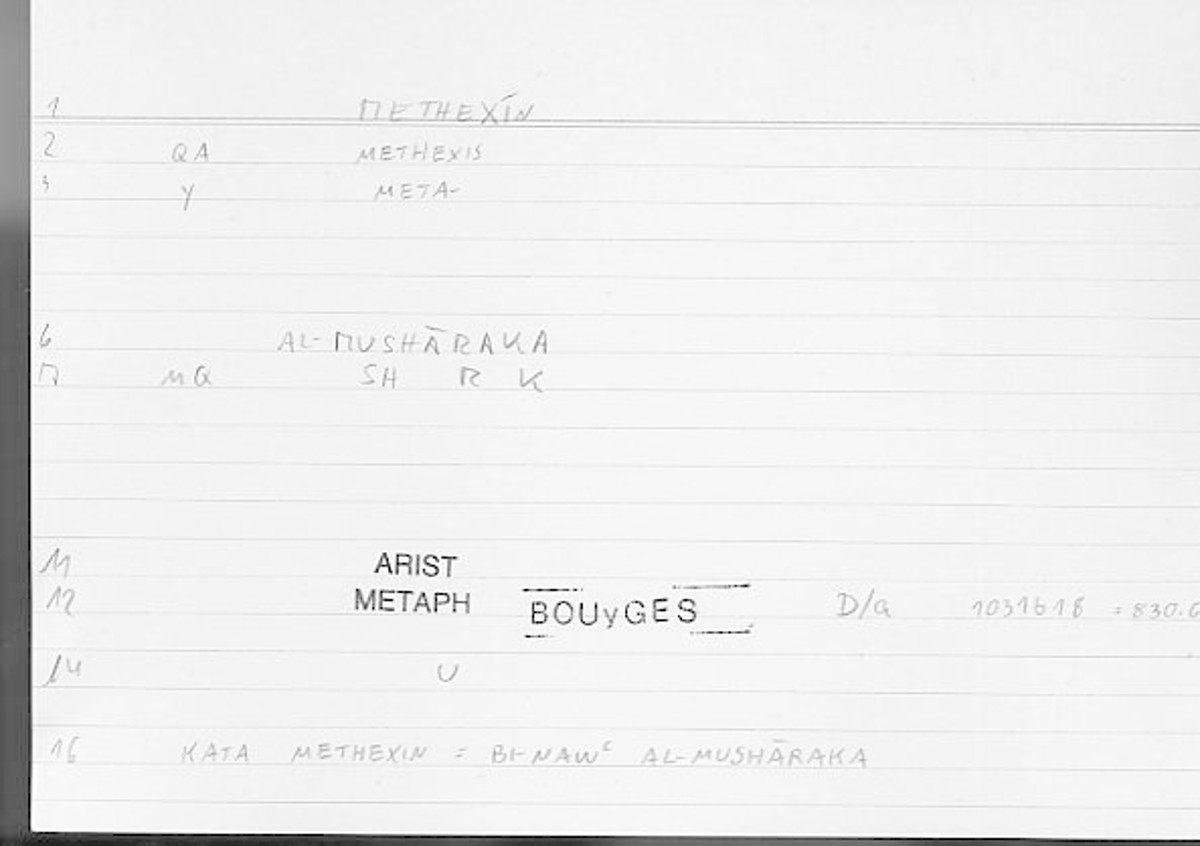 1 METHEXÍN
2 QA METHEXIS
3 Y META-
6 AL-MUSHĀRAKA
7 MQ SH R K
11 ARIST
12 METAPH BOUyGES D/a 1031b18 = 830.
14 U
16 KATA METHEXIN = BI-NAWʿ AL-MUSHĀRAKA